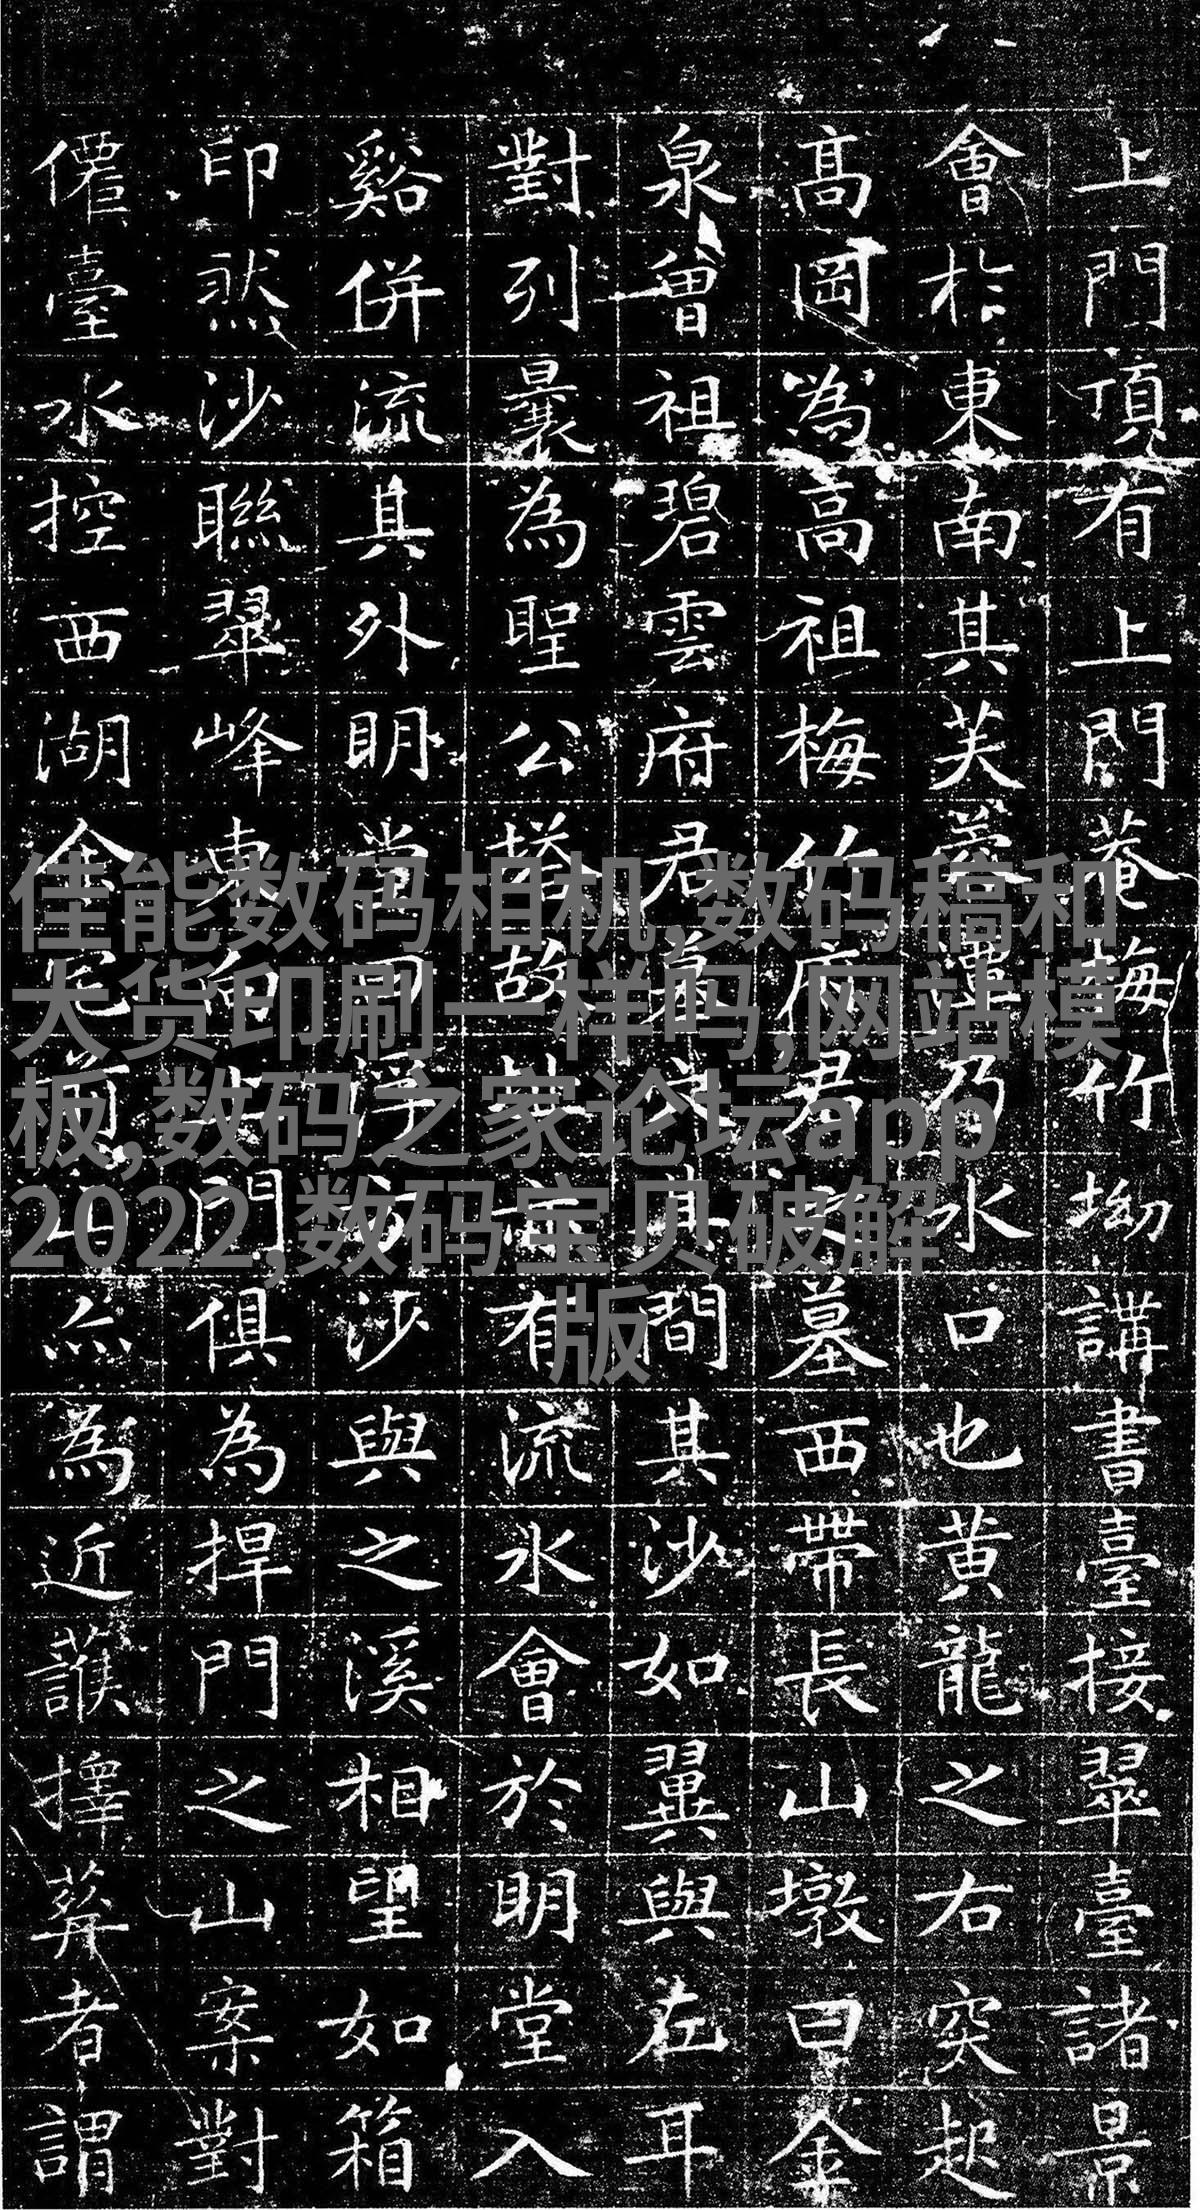 上門頂有上門菴梅竹坳講書臺接翠臺諸景
會扵東南其芙蓉乃水口也黃龍之右突起
髙岡為高祖梅竹府君墓西帶長山墩曰金
泉曾祖碧雲府君其間其沙如翼與左耳
對列曩為聖公塔故有流水會於明堂入
谿併流其外明堂沙與之溪相望如箱
印然沙聯翠峰東向門俱為捍門之山案對
僊臺水控西湖金宅前為近護擇葬者謂
佳能数码相机,数码稿和
大货印刷一样吗,网站模
板,数码之家论坛app
2022,数码宝贝破解
版